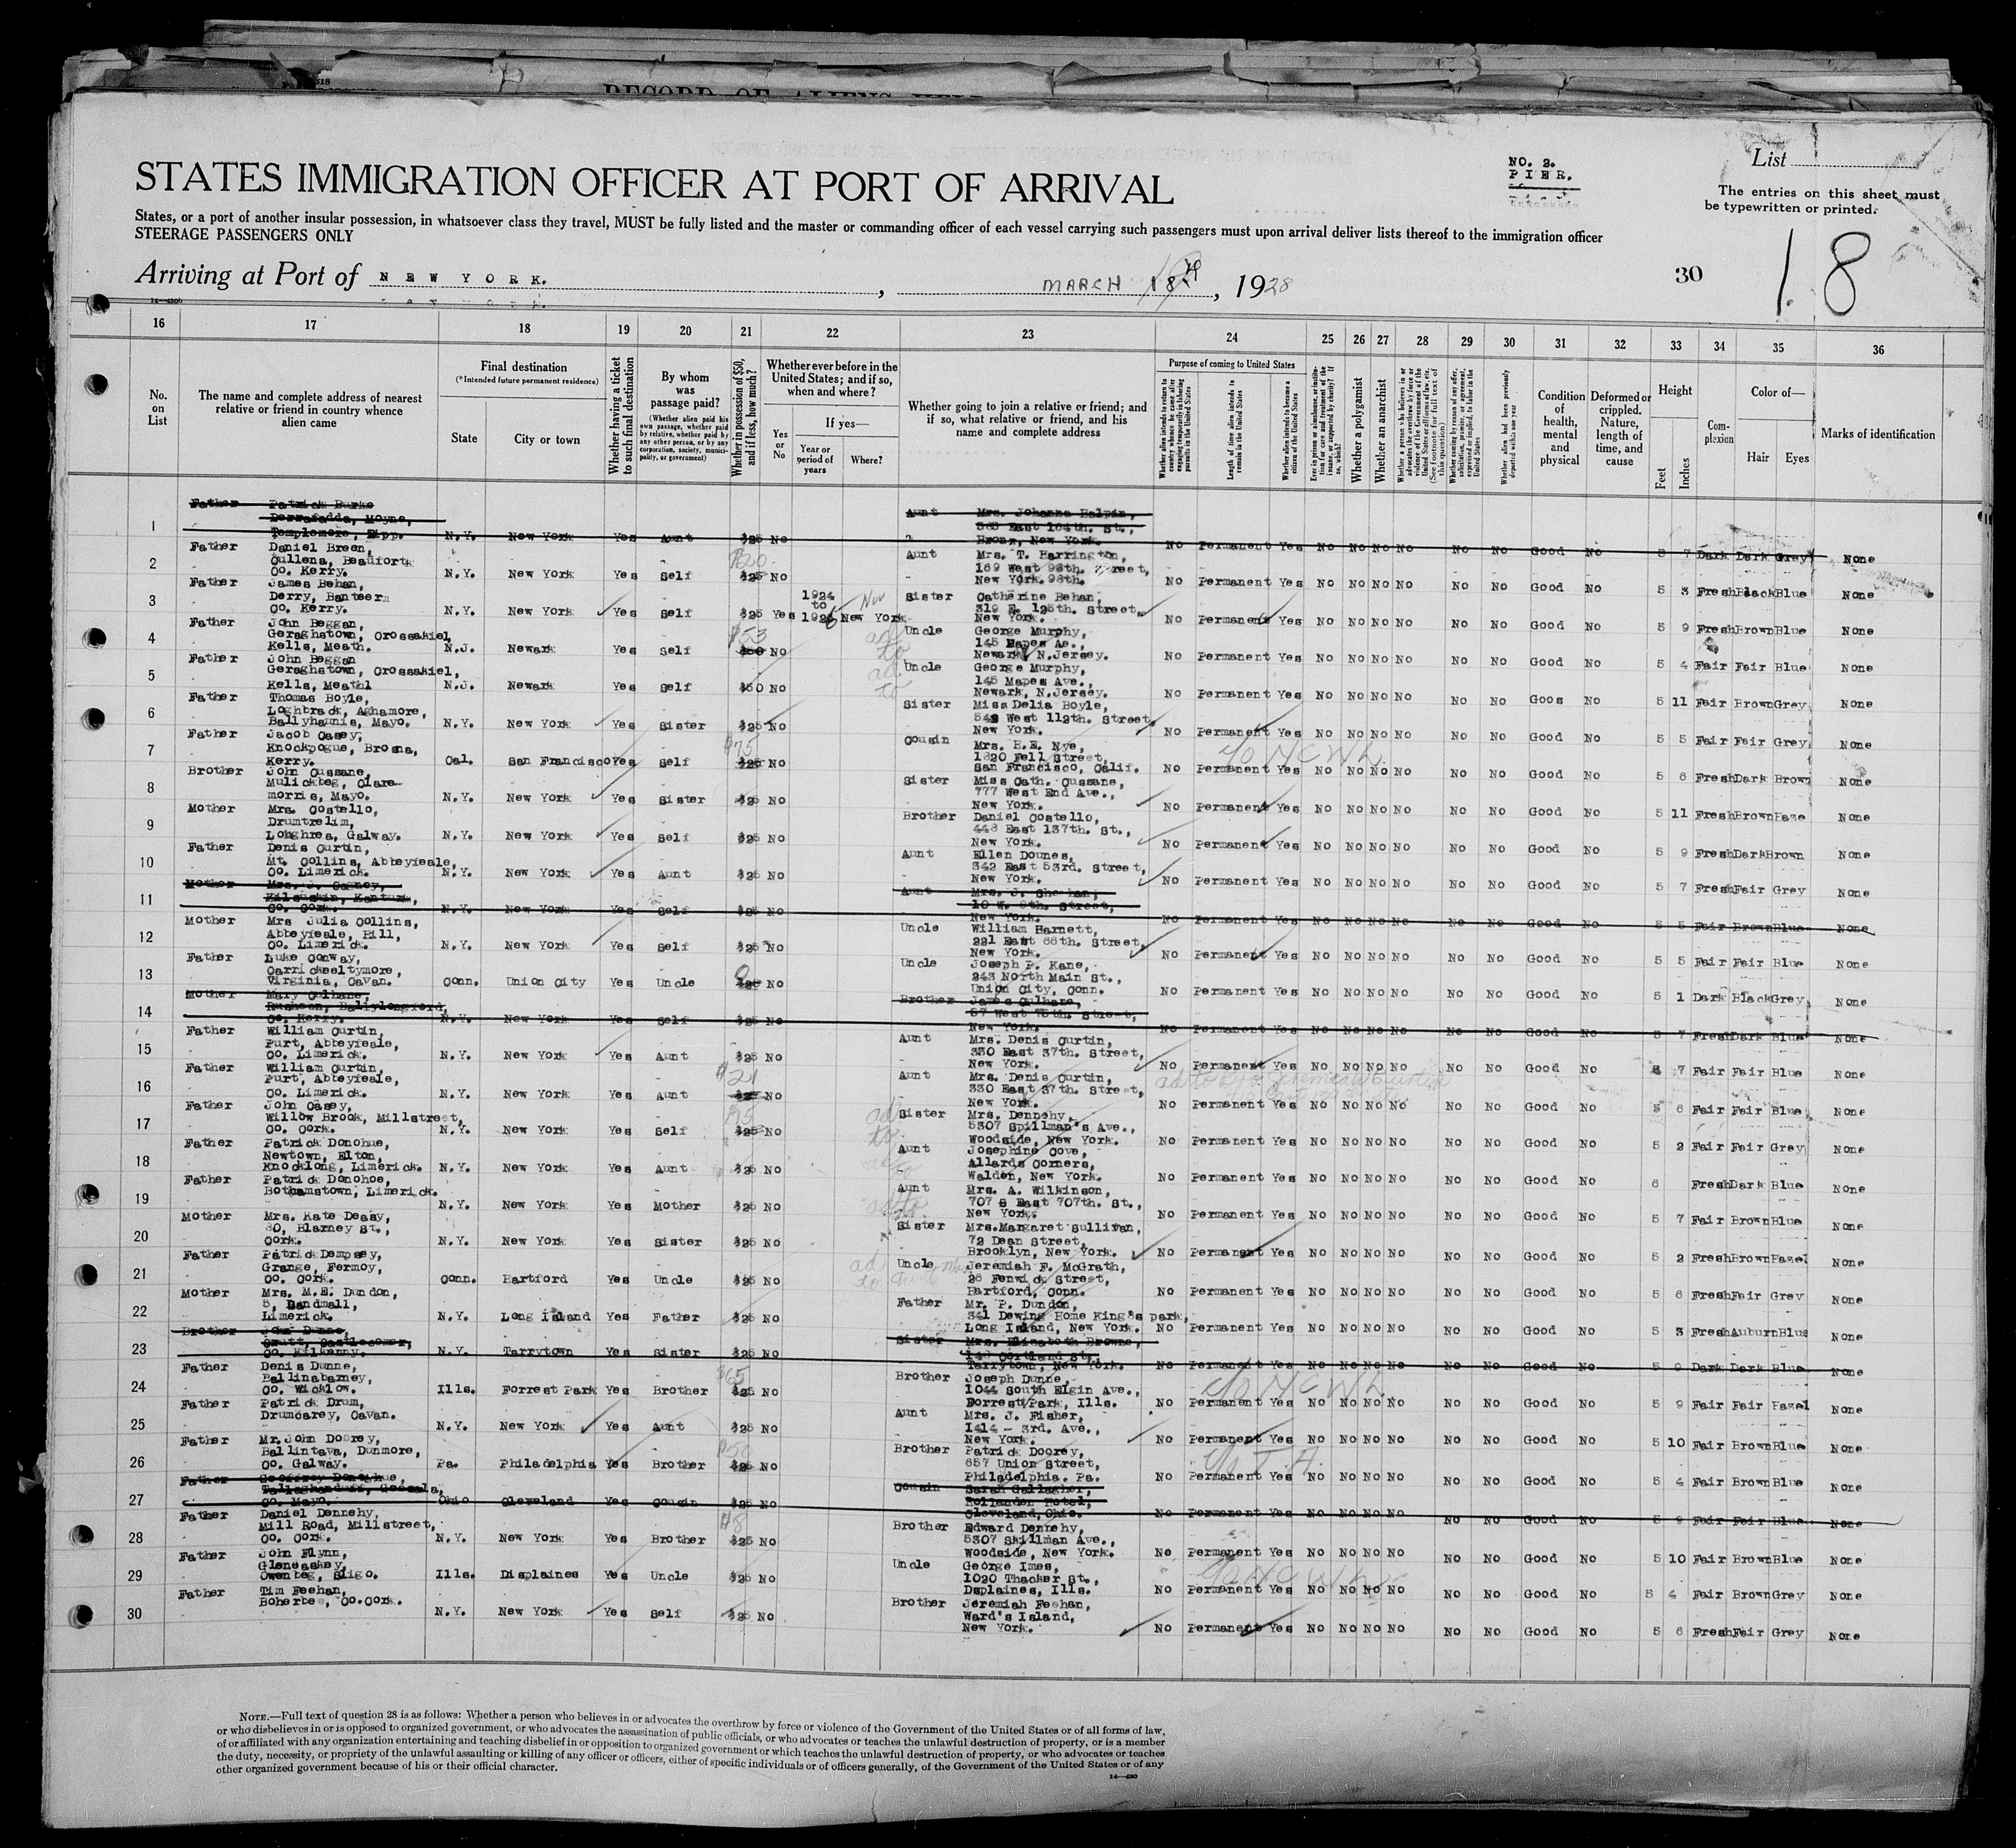 RECORD OF ALIENS HELD
STATES IMMIGRATION OFFICER AT PORT OF ARRIVAL
NO. 2.
PIER.
List
The entries on this sheet must
be typewritten or printed.
States, or a port of another insular possession, in whatsoever class they travel, MUST be fully listed and the master or commanding officer of each vessel carrying such passengers must upon arrival deliver lists thereof to the immigration officer
STEERAGE PASSENGERS ONLY
Arriving at Port of NEW YORK. , MARCH 18th , 1928
30
18
16 17 18 19 20 21 22 23 24 25 26 27 28 29 30 31 32 33 34 35 36
No. on List
The name and complete address of nearest relative or friend in country whence alien came
Final destination
(*Intended future permanent residence)
State
City or town
Whether having a ticket to such final destination
By whom was passage paid?
(Whether alien paid his own passage, whether paid by relative, whether paid by any other person, or by any corporation, society, municipality, or government)
Whether in possession of $50, and if less, how much?
Whether ever before in the United States; and if so, when and where?
Yes or No
If yes—
Year or period of years
Where?
Whether going to join a relative or friend; and if so, what relative or friend, and his name and complete address
Purpose of coming to United States
Whether alien intends to return to country whence he came after engaging temporarily in laboring pursuits in the United States
Length of time alien intends to remain in the United States
Whether alien intends to become a citizen of the United States
Whether a polygamist
Whether an anarchist
Condition of health, mental and physical
Deformed or crippled. Nature, length of time, and cause
Height
Feet
Inches
Complexion
Color of—
Hair
Eyes
Marks of identification
1 Father Patrick Burke Derrafadda, Moyne, Templemore, Tipp. N.Y. New York Yes Aunt $25 No Aunt Mrs. Johanna Halpin, East 164th. St., Bronx, New York. No Permanent Yes No No No No No No Good No 5 7 Dark Dark Grey None
2 Father Daniel Breen, Cullena, Beaufort Co. Kerry. N.Y. New York Yes Self $25 $20 No Aunt Mrs. T. Harrington, 169 West 98th. Street, New York. 98th. No Permanent Yes No No No No No No Good No 5 3 Fresh Black Blue None
3 Father James Behan, Derry, Banteer Co. Kerry. N.Y. New York Yes Self $25 Yes 1924 to 1926 New York Nov Sister Catherine Behan, 319 E. 125th. Street, New York. No Permanent Yes No No No No No No Good No 5 9 Fresh Brown Blue None
4 Father John Beggan, Geraghstown, Crossakiel, Kells, Meath. N.J. Newark Yes Self $53 No ad to Uncle George Murphy, 145 Mapes Ae., Newark N.Jersey. No Permanent Yes No No No No No No Good No 5 4 Fair Fair Blue None
5 Father John Beggan Geraghstown, Crossakiel, Kells, Meathl N.J. Newark Yes Self $50 No ad to Uncle George Murphy, 145 Mapes Ave., Newark, N.Jersey. No Permanent Yes No No No No No No Goos No 5 11 Fair Brown Grey None
6 Father Thomas Boyle, Loghbrack, Aghamore, Ballyhaunis, Mayo. N.Y. New York Yes Sister $25 No Sister Miss Delia Boyle, 549 West 112th. Street, New York. No Permanent Yes No No No No No No Good No 5 5 Fair Fair Grey None
7 Father Jacob Casey, Knockpogue, Brosna, Kerry. Cal. San Francisco Yes Self $75 No Cousin Mrs. H.E. Nye, 1820 Fell Street, San Francisco, Calif. No Permanent Yes No No No No No No Good No 5 6 Fresh Dark Brown None
8 Brother John Cussane, Mulickbeg, Clare-morris, Mayo. N.Y. New York Yes Sister $25 No Sister Miss Cath. Cussane, 777 West End Ave., New York. No Permanent Yes No No No No No No Good No 5 11 Fresh Brown Haze None
9 Mother Mrs. Costello, Drumtrelim, Loughrea, Galway. N.Y. New York Yes Self $25 No Brother Daniel Costello, 448 East 137th. St., New York. No Permanent Yes No No No No No No Good No 5 9 Fresh Dark Brown None
10 Father Denis Curtin, Mt. Collins, Abbeyfeale, Co. Limerick. N.Y. New York Yes Aunt $25 No Aunt Ellen Dounes, 342 East 53rd. Street, New York. No Permanent Yes No No No No No No Good No 5 7 Fresh Fair Grey None
11 Mother Mrs. J. Cagney, Kanturk, Co. Cork. N.Y. New York Yes Self $25 No Aunt Mrs. J. Sheehan, New York. No Permanent Yes No No No No No No Good No 5 5 Fair Brown Blue None
12 Mother Mrs Julia Collins, Abbeyfeale, Hill, Co. Limerick. N.Y. New York Yes Self $25 No Uncle William Harnett, 221 East 66th. Street, New York. No Permanent Yes No No No No No No Good No 5 5 Fair Fair Blue None
13 Father Luke Conway, Carrickseltymore, Virginia, Cavan. Conn. Union City Yes Uncle No Uncle Joseph P. Kane, 243 North Main St., Union City, Conn. No Permanent Yes No No No No No No Good No 5 1 Dark Black Grey None
14 Mother Mary Culhane, Rusheen, Ballylongford, Co. Kerry. N.Y. New York Yes Self $25 No Brother James Culhane, 57 West 75th. Street, New York. No Permanent Yes No No No No No No Good No 5 7 Fresh Dark Blue None
15 Father William Curtin, Purt, Abbeyfeale, Co. Limerick. N.Y. New York Yes Aunt $25 No Aunt Mrs. Denis Curtin, 330 East 37th. Street, New York. No Permanent Yes No No No No No No Good No 5 7 Fair Fair Blue None
16 Father William Curtin, Purt, Abbeyfeale, Co. Limerick. N.Y. New York Yes Aunt $21 No Aunt Mrs. Denis Curtin, 330 East 37th. Street, New York. No Permanent Yes No No No No No No Good No 5 6 Fair Fair Blue None
17 Father John Casey, Willow Brook, Millstreet, Co. Cork. N.Y. New York Yes Self $25 No ad to Sister Mrs. Dennehy, 5307 Spillman's Ave., Woodside, New York. No Permanent Yes No No No No No No Good No 5 2 Fair Fair Grey None
18 Father Patrick Donohue, Newtown, Elton, Knocklong, Limerick. N.Y. New York Yes Aunt $25 No Aunt Josephine Cove, Allards Corners, Walden, New York. No Permanent Yes No No No No No No Good No 6 Fresh Dark Blue None
19 Father Patrick Donohoe, Bothamstown, Limerick. N.Y. New York Yes Mother $25 No ad to Aunt Mrs. A. Wilkinson, 707 S East 707th. St., New York. No Permanent Yes No No No No No No Good No 5 7 Fair Brown Blue None
20 Mother Mrs. Kate Deasy, 80, Blarney St., Cork. N.Y. New York Yes Sister $25 No Sister Mrs.Margaret Sullivan, 72 Dean Street, Brooklyn, New York. No Permanent Yes No No No No No No Good No 5 2 Fresh Brown Hazel None
21 Father Patrick Dempsey, Grange, Fermoy, Co. Cork. Conn. Hartford Yes Uncle $25 No ad to aunt Uncle Jeremiah F. McGrath, 26 Fenwick Street, Hartford, Conn. No Permanent Yes No No No No No No Good No 5 6 Fresh Fair Grey None
22 Mother Mrs. M.E. Dundon, 5, Sandmall, Limerick. N.Y. Long Island Yes Father $25 No Father Mr. P. Dundon, 341 Dewing Home King's park, Long Island, New York. No Permanent Yes No No No No No No Good No 5 3 Fresh Auburn Blue None
23 Brother John Dunne, Castlecomer, Co. Kilkenny. N.Y. Tarrytown Yes Sister $25 No Sister Mrs. Elizabeth Browne, Cortland St. Tarrytown, New York. No Permanent Yes No No No No No No Good No 5 9 Dark Dark Blue None
24 Father Denis Dunne, Ballinabarney, Co. Wicklow. Ills. Forrest Park Yes Brother $65 $25 No Brother Joseph Dunne, 1044 South Elgin Ave., Forrest Park, Ills. No Permanent Yes No No No No No No Good No 5 9 Fair Fair Hazel None
25 Father Patrick Drum, Drumcarey, Cavan. N.Y. New York Yes Aunt $25 No Aunt Mrs. J. Fisher, 1414 - 3rd. Ave., New York. No Permanent Yes No No No No No No Good No 5 10 Fair Brown Blue None
26 Father Mr.John Doorey, Ballintava, Dunmore, Co. Galway. Pa. Philadelphia Yes Brother $50 $25 No Brother Patrick Doorey, 657 Union Street, Philadelphia. Pa. No Permanent Yes No No No No No No Good No 5 4 Fair Brown Blue None
27 Father Geoffrey Donoghue, Co. Mayo. Ohio Cleveland Yes Cousin $25 No Cousin Sarah Gallagher, Hollenden Hotel, Cleveland, Ohio. No Permanent Yes No No No No No No Good No 5 9 Fair Fair Blue None
28 Father Daniel Dennehy, Mill Road, Millstreet, Co. Cork. N.Y. New York Yes Brother $25 No Brother Edward Dennehy, 5307 Skillman Ave., Woodside, New York. No Permanent Yes No No No No No No Good No 5 10 Fair Brown Blue None
29 Father John Flynn, Gleneaskey, Owenbeg, Sligo. Ills. Displaines Yes Uncle $25 No Uncle George Imes, 1020 Thacker St., Dsplaines, Ills. No Permanent Yes No No No No No No Good No 5 4 Fair Brown Grey None
30 Father Tim Feehan, Boherbee, Co.Cork. N.Y. New York Yes Self $25 No Brother Jeremiah Feehan, Ward's Island, New York. No Permanent Yes No No No No No No Good No 5 6 Fresh Fair Grey None
NOTE.—Full text of question 28 is as follows: Whether a person who believes in or advocates the overthrow by force or violence of the Government of the United States or of all forms of law,
or who disbelieves in or is opposed to organized government, or who advocates the assassination of public officials, or who advocates or teaches the unlawful destruction of property, or is a member
of or affiliated with any organization entertaining and teaching disbelief in or opposition to organized government or which teaches the unlawful destruction of property, or who advocates or teaches
the duty, necessity, or propriety of the unlawful assaulting or killing of any officer or officers, either of specific individuals or of officers generally, of the Government of the United States or of any
other organized government because of his or their official character.